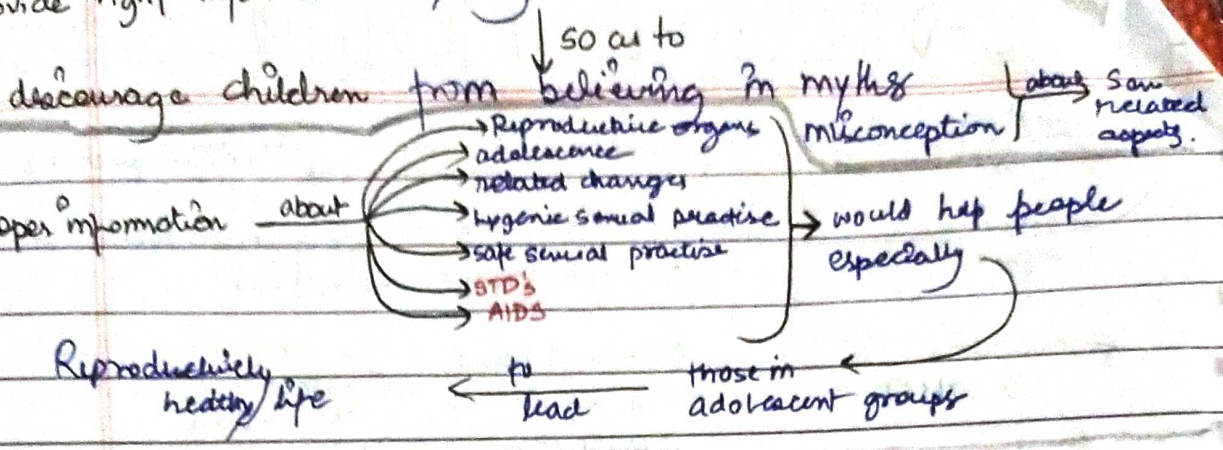 right
so as to
discourage children from believing in myths
misconception
about
Sex related aspects.
oper information
about
Reproductive organs
adolescence
related changes
hygenic sexual practise
safe sexual practise
STD's
AIDS
would help people
especially
those in
adolescent groups
to
lead
Reproductively
healthy life